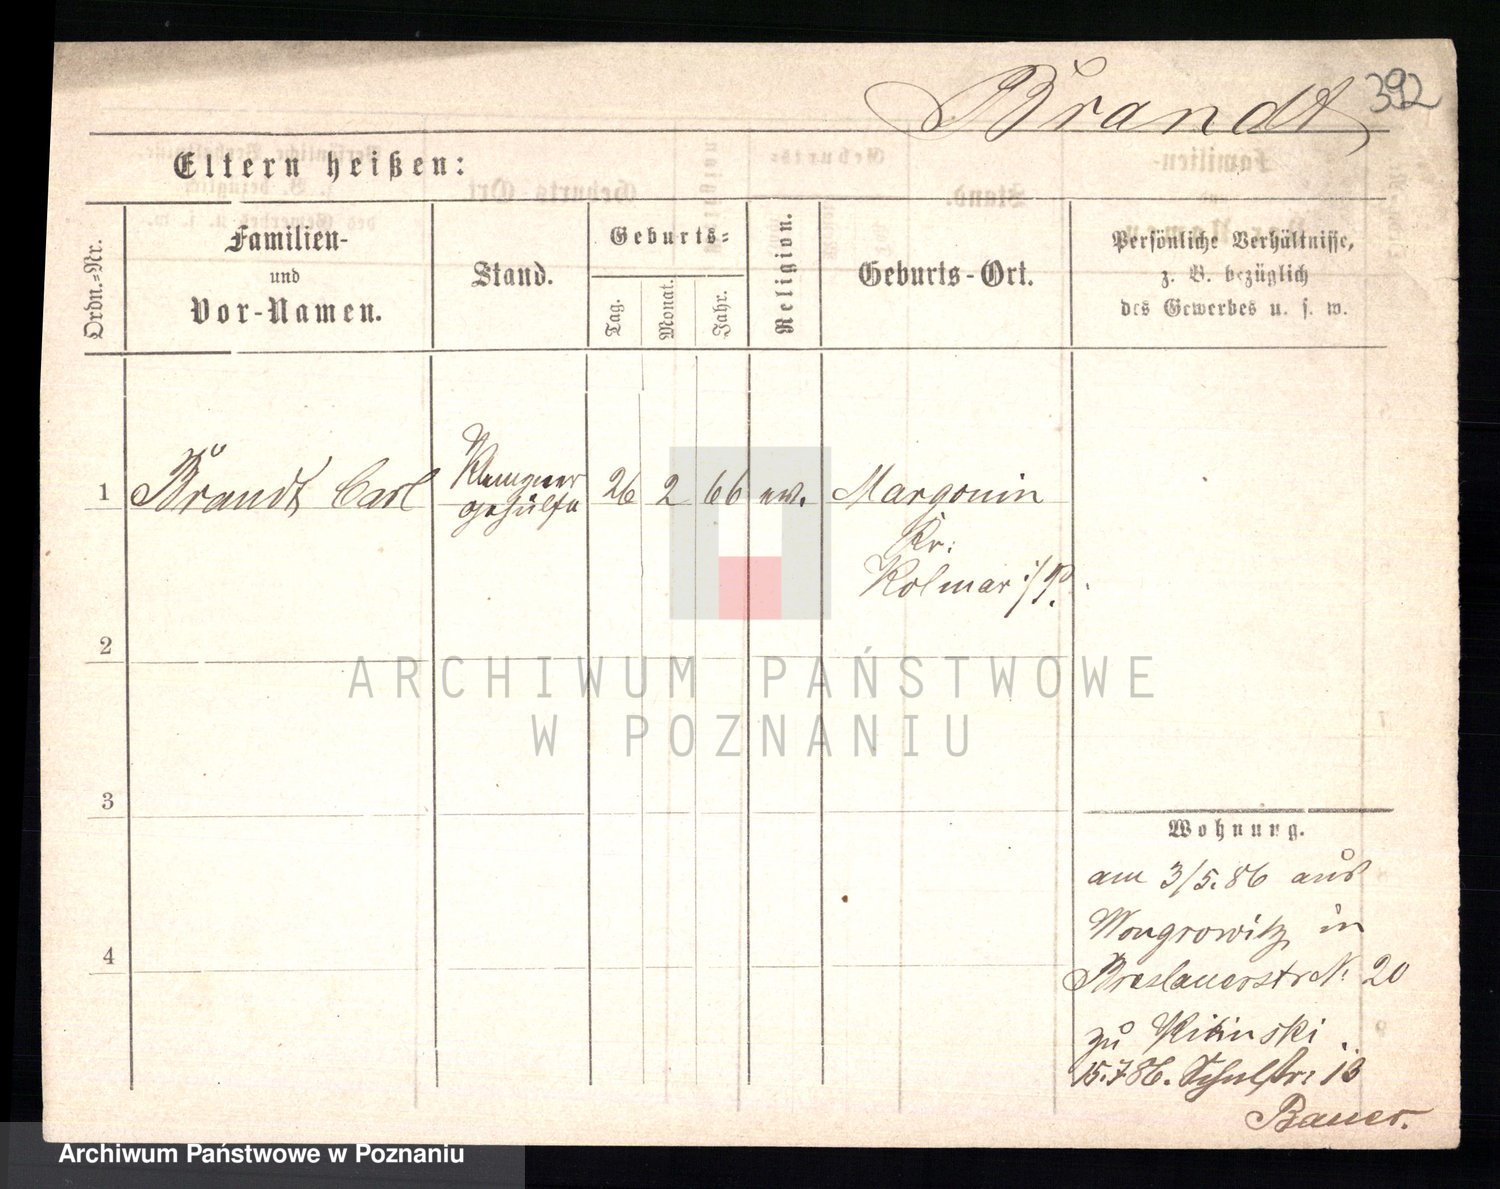 Brandt 392
Eltern heißen:
Ordn.-Nr.
Familien-
und
Vor-Namen.
Stand.
Geburts-
Tag.
Monat.
Jahr.
Religion.
Geburts-Ort.
Persönliche Verhältnisse,
z. B. bezüglich
des Gewerbes u. s. w.
1 Brandt Carl Klempner 26 2 66 ev. Margonin
gehülfe
Kr:
Kolmar i/P.
2
3
4
Wohnung.
am 3/5.86 aus
Wongrowitz in
Breslauerstr N: 20
zu
15.7.86. Schulstr: 13
Bauer.
ARCHIWUM PAŃSTWOWE
W POZNANIU
Archiwum Państwowe w Poznaniu